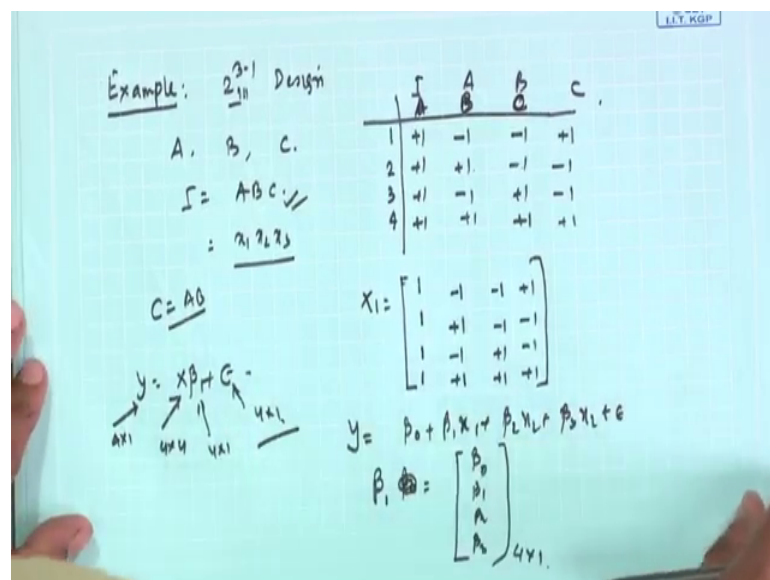 I.I.T. KGP
Example: 2_{III}^{3-1} Design
A, B, C.
I = ABC.
= x₁ x₂ x₃
C = AB
y = xβ₁ + ϵ
4×1 4×4 4×1 4×1
I A B C
A B C
1 +1 -1 -1 +1
2 +1 +1 -1 -1
3 +1 -1 +1 -1
4 +1 +1 +1 +1
X₁ = [ 1 -1 -1 +1
1 +1 -1 -1
1 -1 +1 -1
1 +1 +1 +1 ]
y = β₀ + β₁x₁ + β₂x₂ + β₃x₂ + ϵ
β₁ = [ β₀
β₁
β₃ ] 4×1.